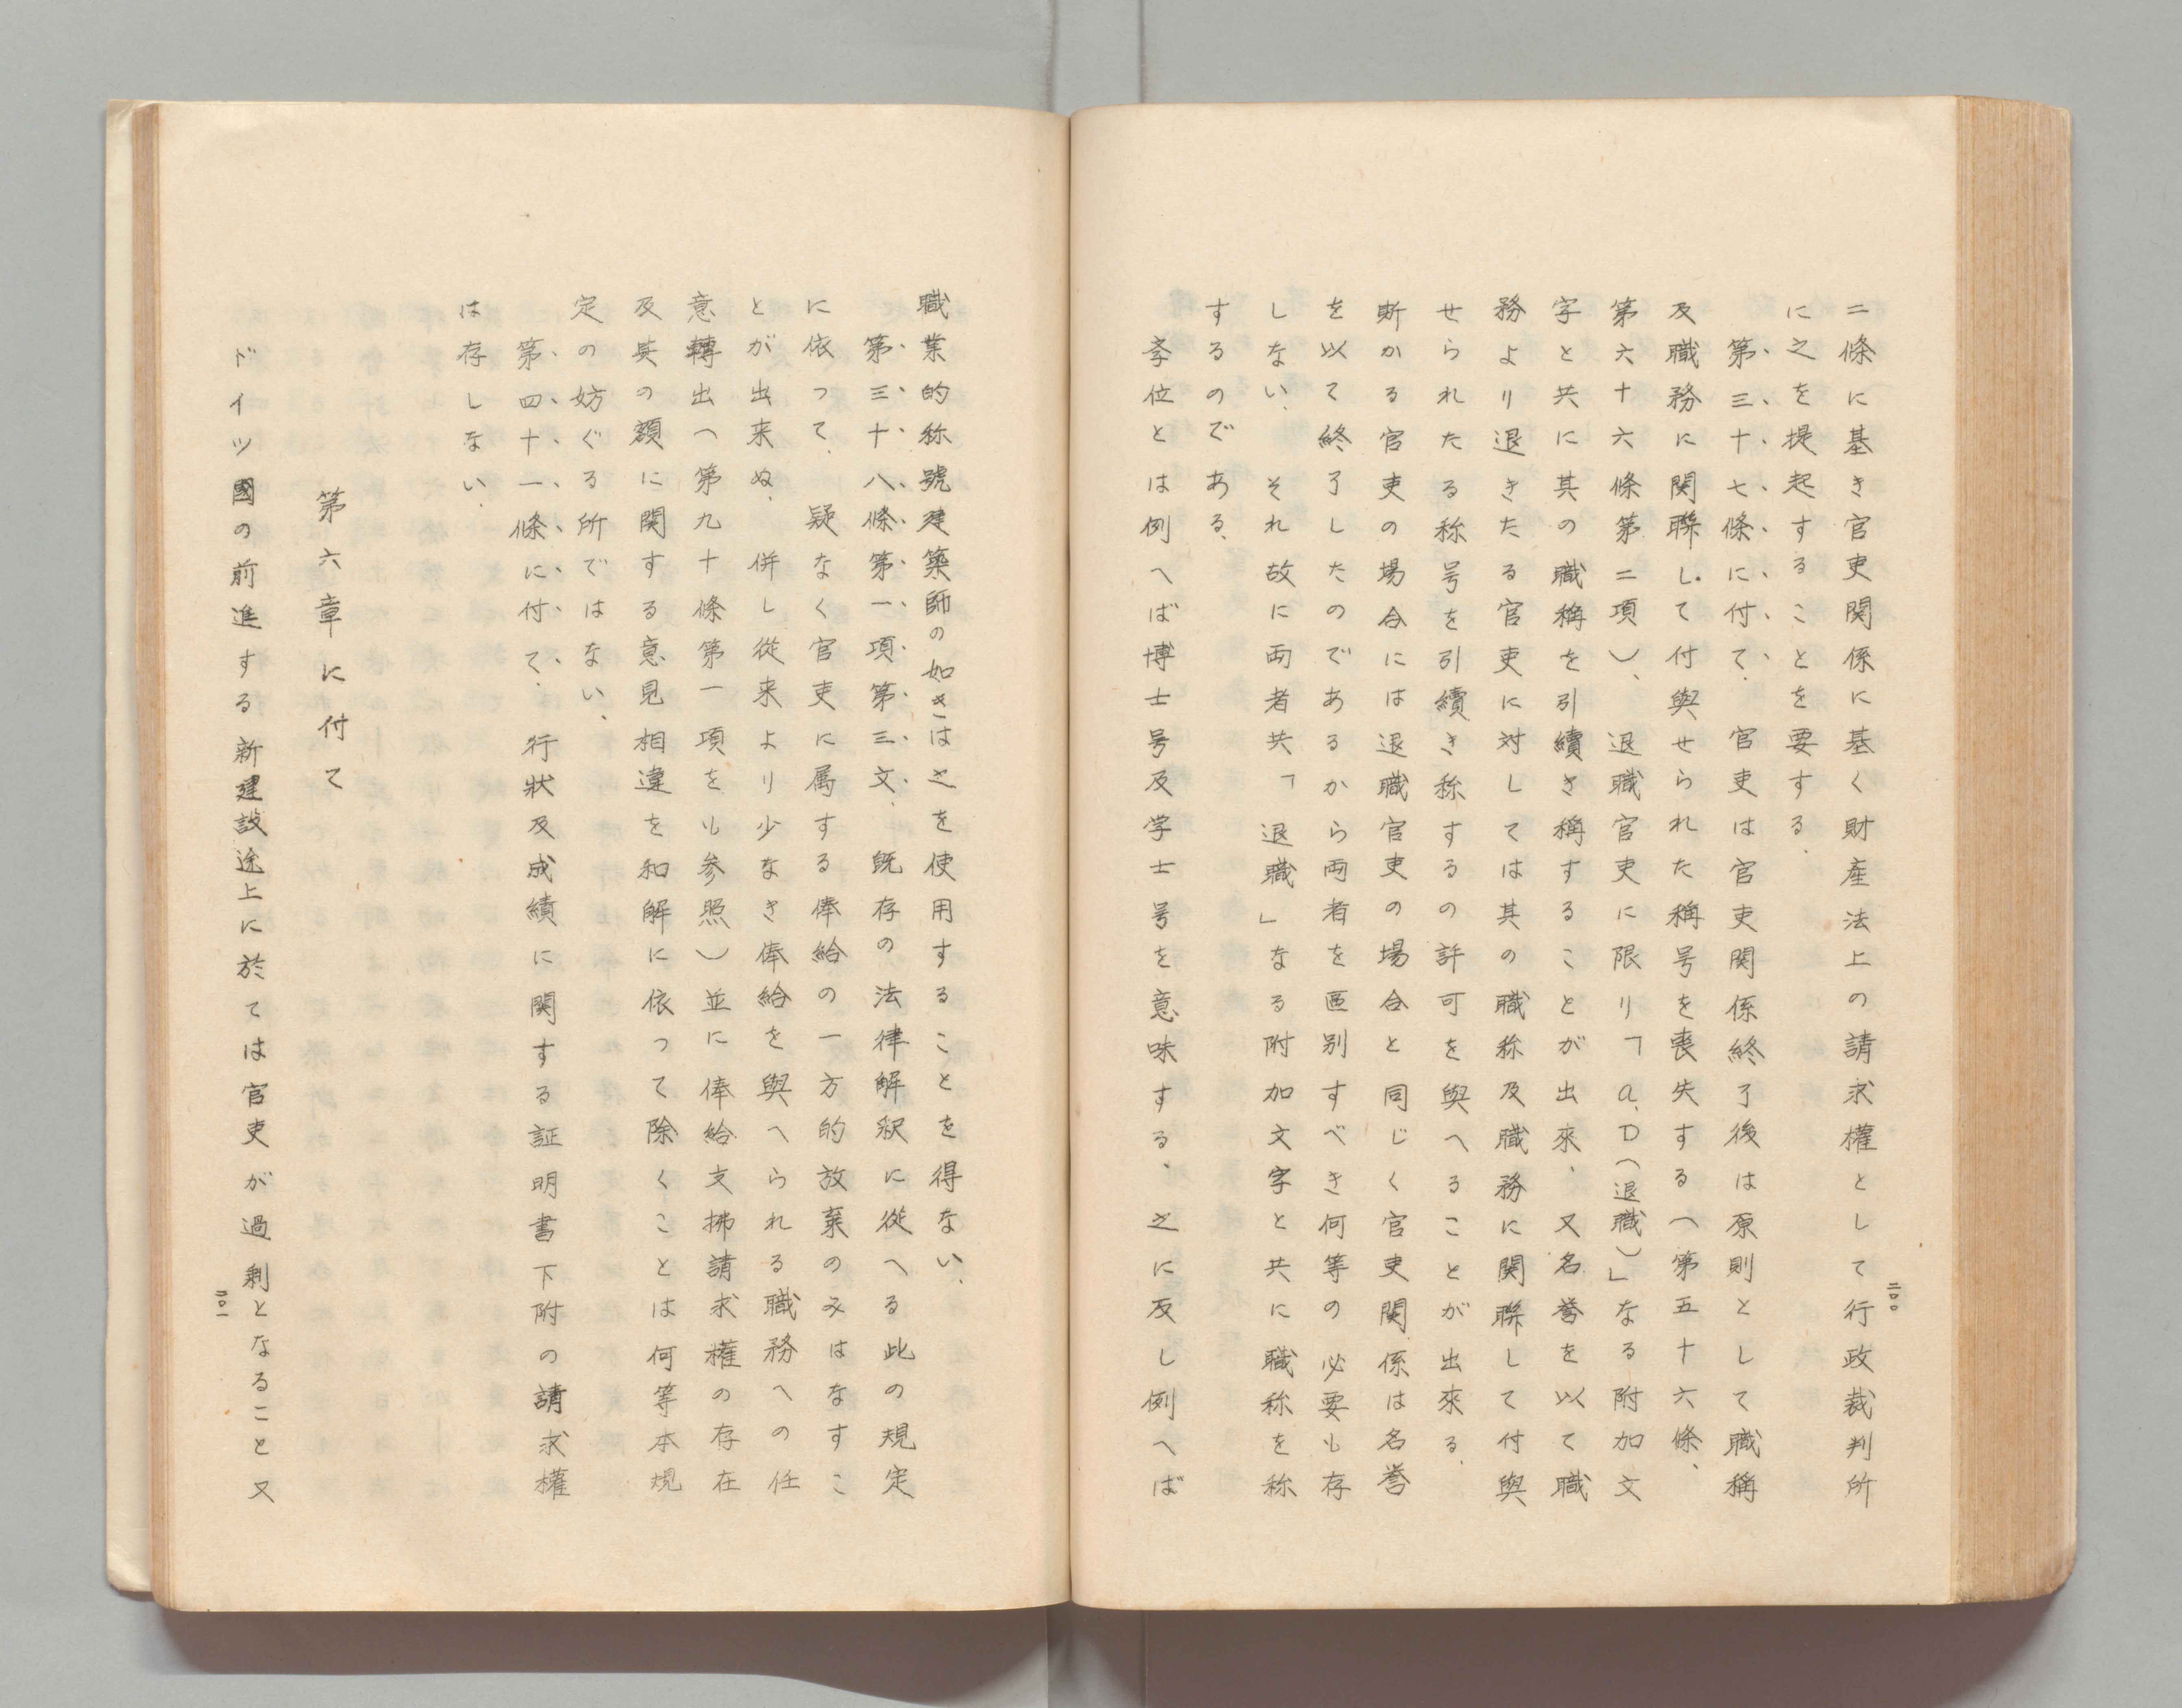 二〇〇
二條に基き官吏関係に基く財産法上の請求權として行政裁判所
に之を提起することを要する、
第三十七條に付て、官吏は官吏関係終了後は原則として職稱
及職務に関聯して付與せられた稱号を喪失する（第五十六條、
第六十六條第二項）、退職官吏に限り「a.D（退職）」なる附加文
字と共に其の職稱を引續き稱することが出來、又名誉を以て職
務より退きたる官吏に対しては其の職称及職務に関聯して付與
せられたる称号を引續き称するの許可を與へることが出來る、
斯かる官吏の場合には退職官吏の場合と同じく官吏関係は名誉
を以て終了したのであるから両者を區別すべき何等の必要も存
しない、それ故に両者共「退職」なる附加文字と共に職称を称
するのである、
学位とは例へば博士号及学士号を意味する、之に反し例へば
職業的称號建築師の如きは之を使用することを得ない、
第三十八條第一項第三文、既存の法律解釈に從へる此の規定
に依つて、疑なく官吏に属する俸給の一方的放棄のみはなすこ
とが出来ぬ、併し從来より少なき俸給を與へられる職務への任
意轉出（第九十條第一項をも参照）並に俸給支拂請求權の存在
及其の額に関する意見相違を和解に依つて除くことは何等本規
定の妨ぐる所ではない、
第四十一條に付て、行狀及成績に関する証明書下附の請求權
は存しない、
第六章に付て
ドイツ國の前進する新建設途上に於ては官吏が過剰となること又
二〇一